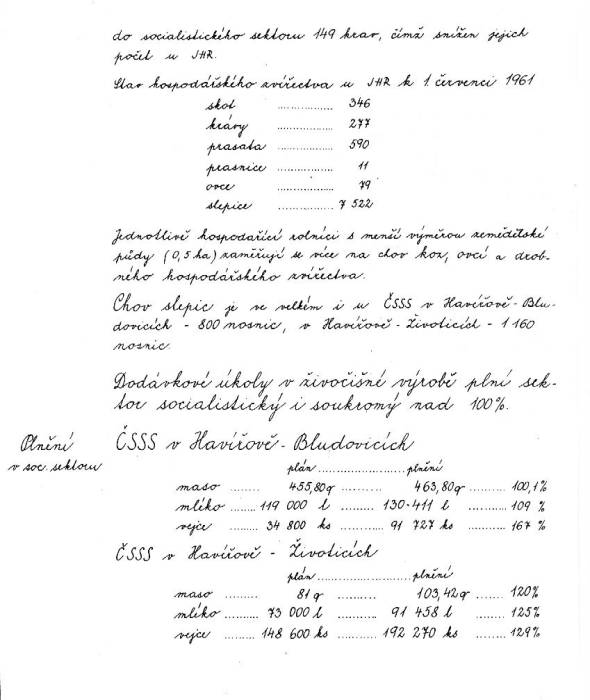 do socialistického sektoru 149 krav, čímž snížen jejich
počet u JHR.
Stav hospodářského zvířectva u JHR k 1. červenci 1961
skot ................. 346
krávy ................. 277
prasata ................. 590
prasnice ................. 11
ovce ................. 79
slepice ................. 7 522
Jednotlivě hospodařící rolníci s menší výměrou zemědělské
půdy (0,5 ha) zaměřují se více na chov koz, ovcí a drob-
ného hospodářského zvířectva.
Chov slepic je ve velkém i u ČSSS v Havířově-Blu-
dovicích - 800 nosnic, v Havířově - Životicích - 1 160
nosnic.
Dodávkové úkoly v živočišné výrobě plní sek-
tor socialistický i soukromý nad 100%.
Plnění
v soc. sektoru
ČSSS v Havířově - Bludovicích
plán ......................... plnění
maso ......... 455,80q ........... 463,80q .......... 100,1%
mléko ......... 119 000 l .......... 130.411 l .......... 109 %
vejce ......... 34 800 ks .......... 91 727 ks .......... 167 %
ČSSS v Havířově - Životicích
plán ......................... plnění
maso ......... 81q ........... 103,42q ....... 120%
mléko .......... 73 000 l ........... 91 458 l ......... 125%
vejce ......... 148 600 ks ........... 192 270 ks ........ 129%